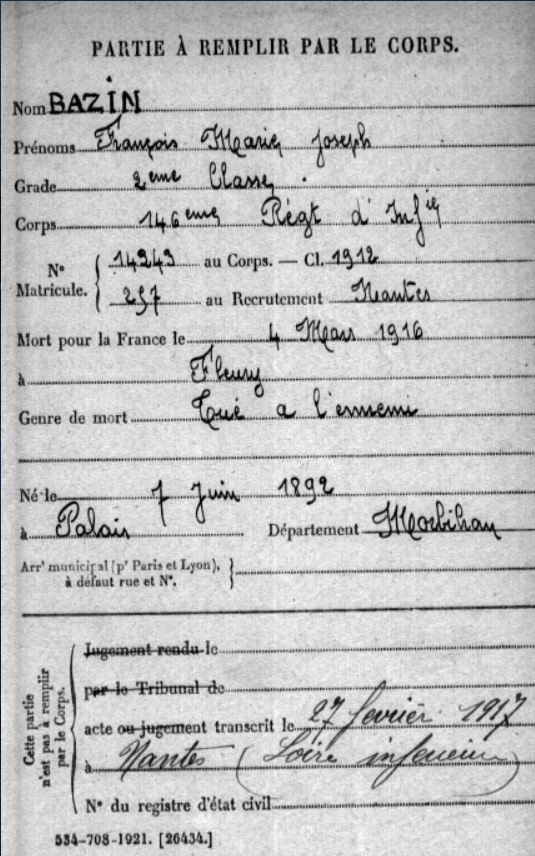 PARTIE À REMPLIR PAR LE CORPS.
Nom BAZIN
Prénoms François Marie Joseph
Grade 2eme Classe
Corps 146eme Régt d'Infie
14243 au Corps. — Cl. 1912
N° Matricule.
257 au Recrutement Nantes
Mort pour la France le 4 Mars 1916
à Fleury
Genre de mort Tué a l'ennemi
Né le 7 Juin 1892
à Palais Département Morbihan
Arrt municipal (pr Paris et Lyon),
à défaut rue et N°.
Jugement rendu le
par le Tribunal de
acte ou jugement transcrit le 27 fevrier 1917
à Nantes (Loire inferieure)
N° du registre d'état civil
Cette partie
n'est pas à remplir
par le Corps.
534-708-1921. [26434.]